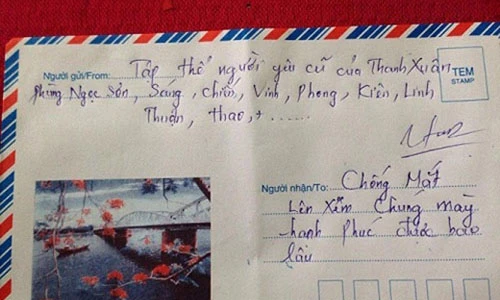 Người gửi/From: Tập thể người yêu cũ của Thanh Xuân
Phùng Ngọc Sơn, Sáng, Chiến, Vinh, Phong, Kiên, Linh
Thuận, thao, + ......
TEM
STAMP
Người nhận/To: Chồng Mất
Lên Xem Chung mày
hạnh phúc được bao
lâu